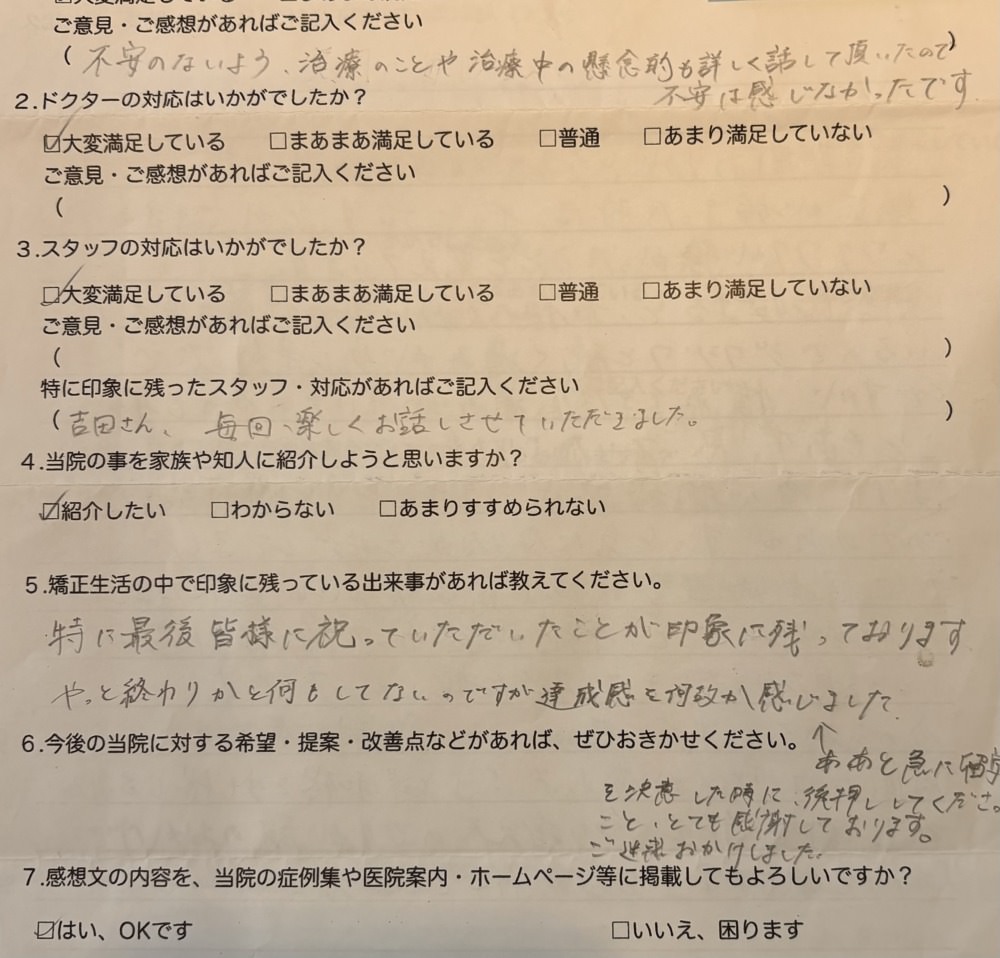 ご意見・ご感想があればご記入ください
(不安のないよう、治療のことや治療中の懸念的も詳しく話して頂いたので)
不安は感じなかったです
2.ドクターの対応はいかがでしたか？
☑大変満足している　□まあまあ満足している　□普通　□あまり満足していない
ご意見・ご感想があればご記入ください
(　)
3.スタッフの対応はいかがでしたか？
☑大変満足している　□まあまあ満足している　□普通　□あまり満足していない
ご意見・ご感想があればご記入ください
(　)
特に印象に残ったスタッフ・対応があればご記入ください
(吉田さん、毎回、楽しくお話しさせていただきました。)
4.当院の事を家族や知人に紹介しようと思いますか？
☑紹介したい　□わからない　□あまりすすめられない
5.矯正生活の中で印象に残っている出来事があれば教えてください。
特に最後皆様に祝っていただいたことが印象に残っております
やっと終わりかと何もしてないのですが達成感を何故か感じました
6.今後の当院に対する希望・提案・改善点などがあれば、ぜひおきかせください。
↑
あと急に
を決意した時に、後押ししてくださ
こと、とても感謝しております。
ご迷惑おかけしました。
7.感想文の内容を、当院の症例集や医院案内・ホームページ等に掲載してもよろしいですか？
☑はい、OKです　□いいえ、困ります